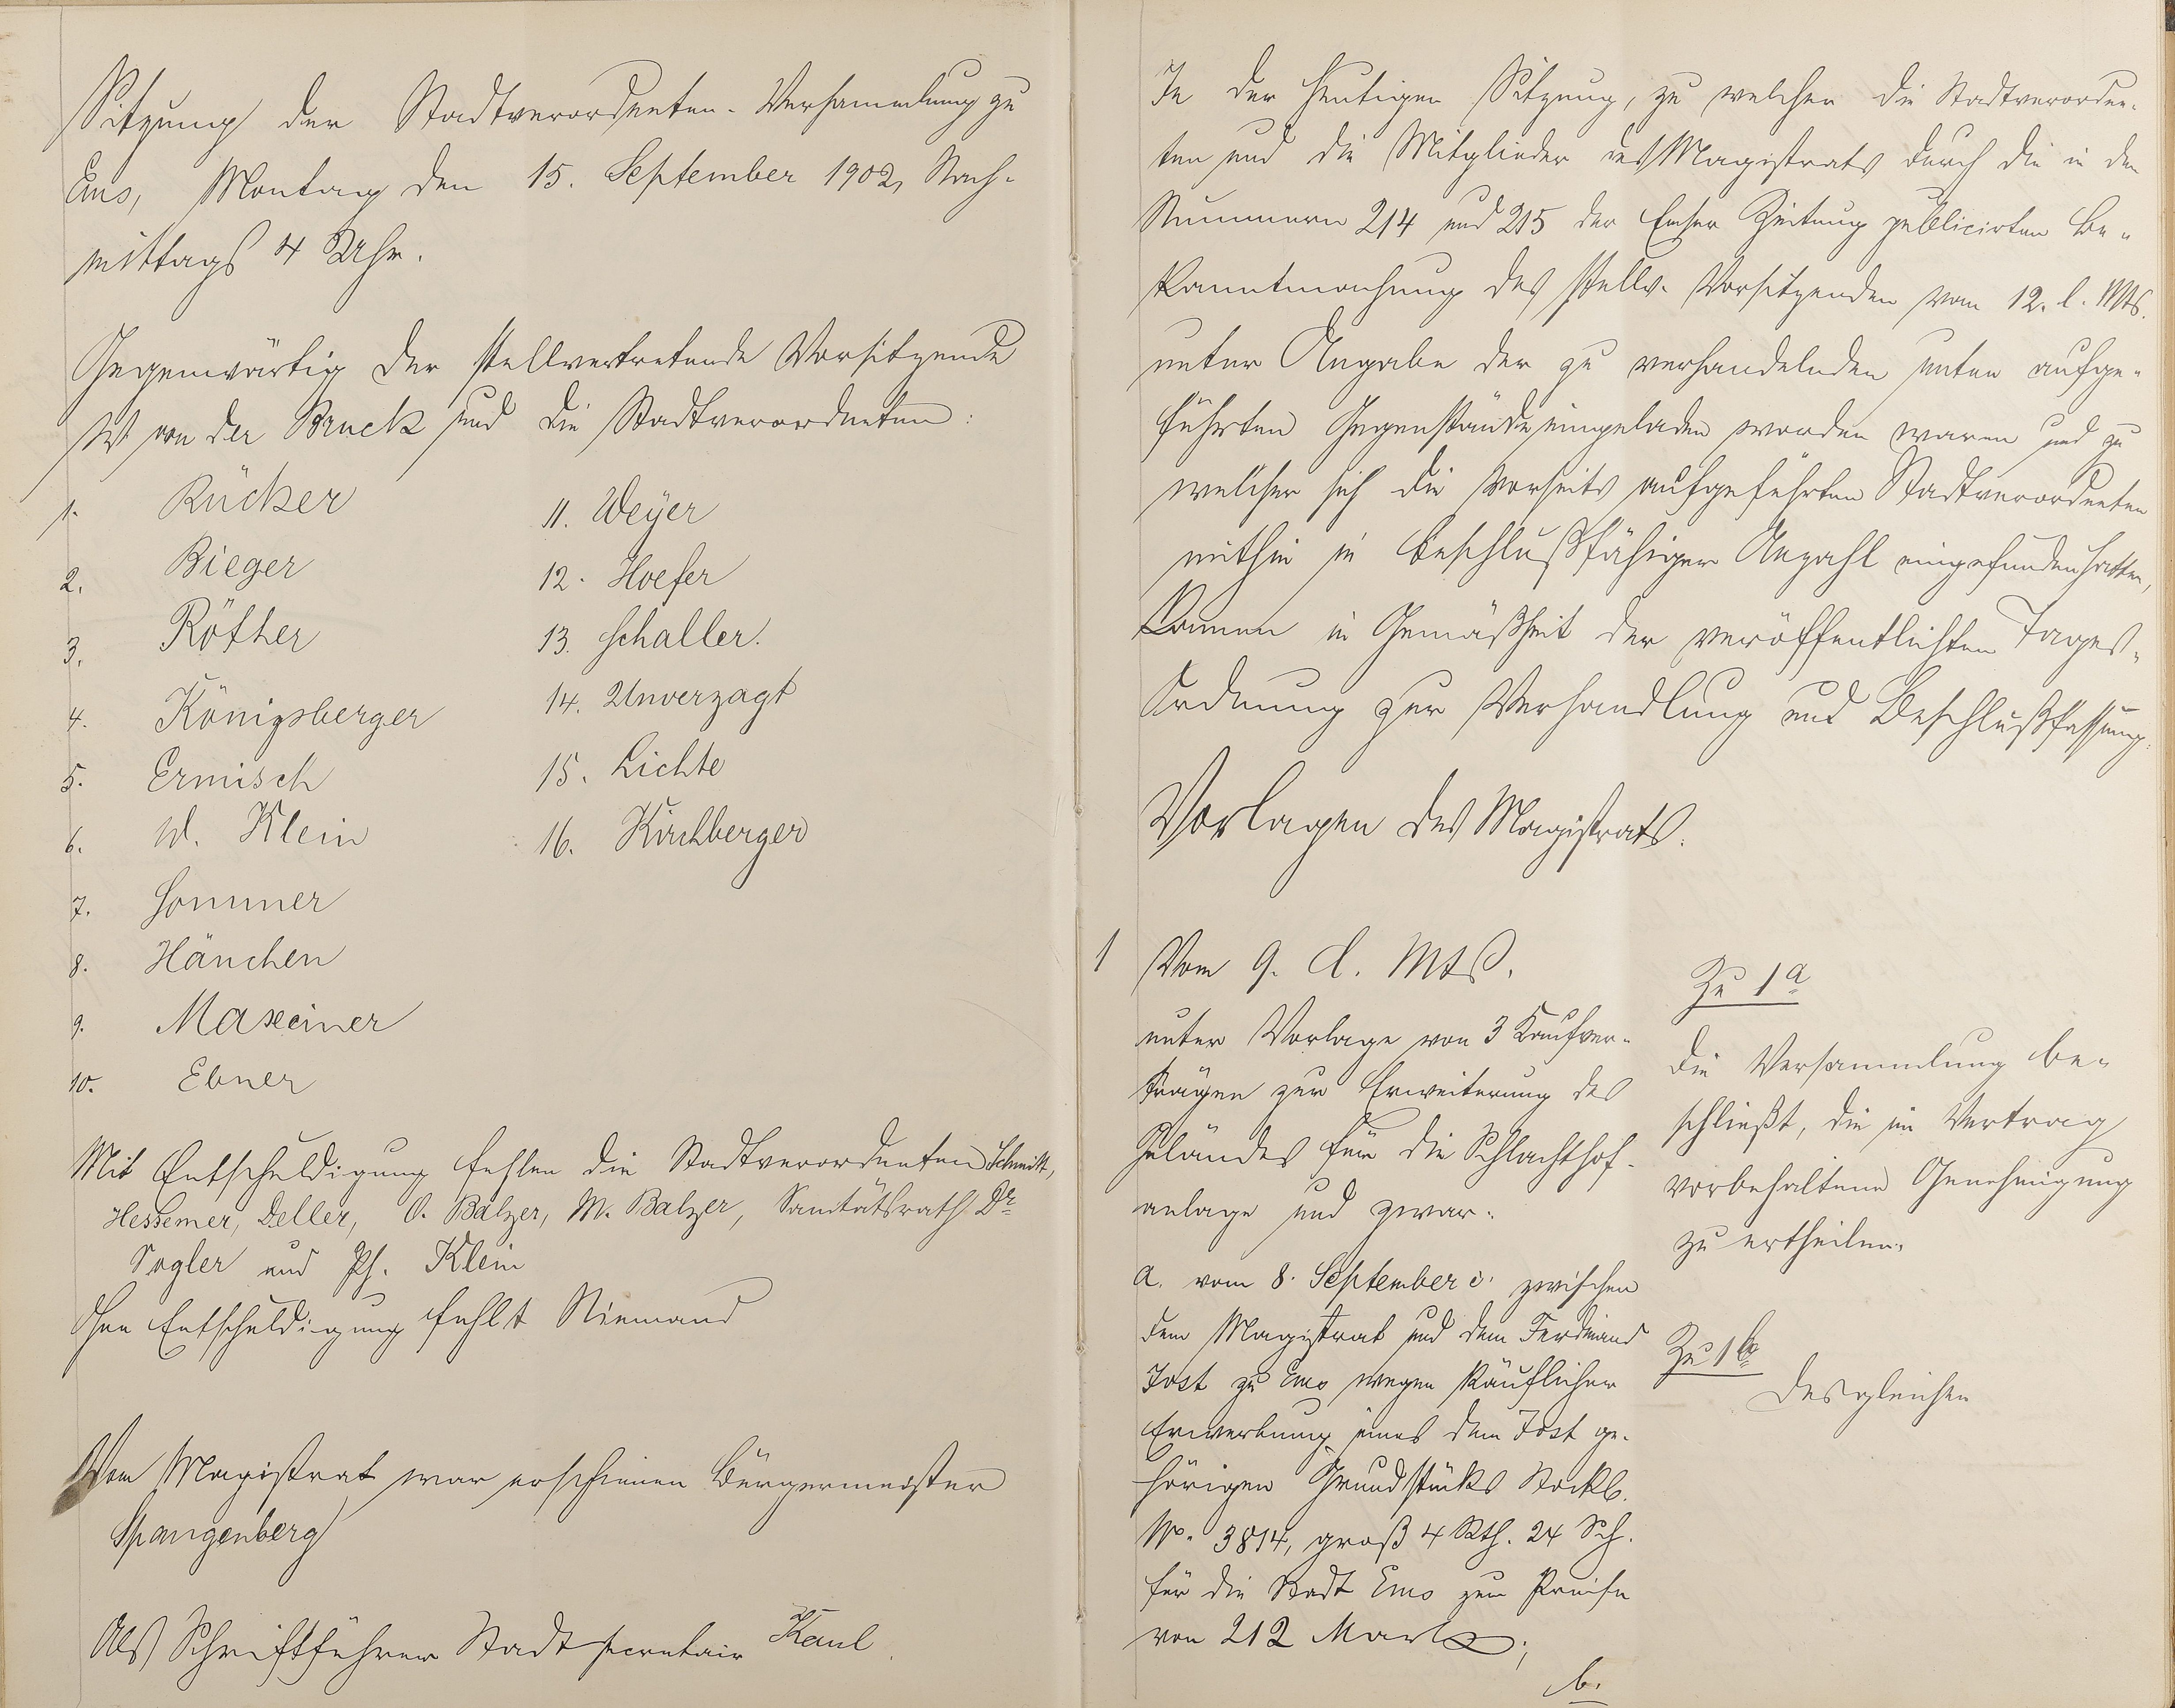 Sitzung der Stadtverordneten-Versammlung zu
Ems, Montag den 15. September 1902, Nach-
mittags 4 Uhr.
Gegenwärtig der stellvertretende Vorsitzende
von der Bruck und die Stadtverordneten:
1. Rücker
2. Bieger
3. Röther
4. Königsberger
5. Ermisch
6. W. Klein
7. Sommer
8. Hänchen
9. Maxeiner
10. Ebner
11. Weyer
12. Hoefer
13. Schaller.
14. Unverzagt
15. Lichte
16. Kirchberger
Mit Entschuldigung fehlen die Stadtverordneten Schmitt,
Hessemer, Deller, O. Balzer, M. Balzer, Sanitätsrath Dr
Vogler und Ph. Klein
Ohne Entschuldigung fehlt Niemand
Vom Magistrat war erschienen Bürgermeister
Spangenberg
Als Schriftführer Stadtsecretair Kaul
In der heutigen Sitzung, zu welcher die Stadtverordne-
ten und die Mitglieder des Magistrats durch die in den
Nummern 214 und 215 der Emser Zeitung publicirten Be-
kanntmachung des stellv. Vorsitzenden vom 12. l. Mts.
unter Angabe der zu verhandelnden unten aufge-
führten Gegenstände eingeladen worden waren und zu
welcher sich die vorseits aufgeführten Stadtverordneten
mithin in beschlußfähiger Anzahl eingefunden hatten,
kamen in Gemäßheit der veröffentlichten Tages-
Ordnung zur Verhandlung und Beschlußfassung:
Vorlagen des Magistrats.
1 Vom 9. d. Mts.
unter Vorlage von 3 Kaufver-
trägen zur Erweiterung des
Geländes für die Schlachthof-
anlage und zwar:
a. vom 8. September c. zwischen
dem Magistrat und dem Ferdinand
Jost zu Ems wegen käuflicher
Erwerbung eines dem Jost ge-
hörigen Grundstücks Stockb.
No. 3814, groß 4 Rth. 24 Sch.
für die Stadt Ems zum Preise
von 212 Mark;
b.
Zu 1a
Die Versammlung be-
schließt, die im Vertrag
vorbehaltene Genehmigung
zu ertheilen.
Zu 1b
Desgleichen